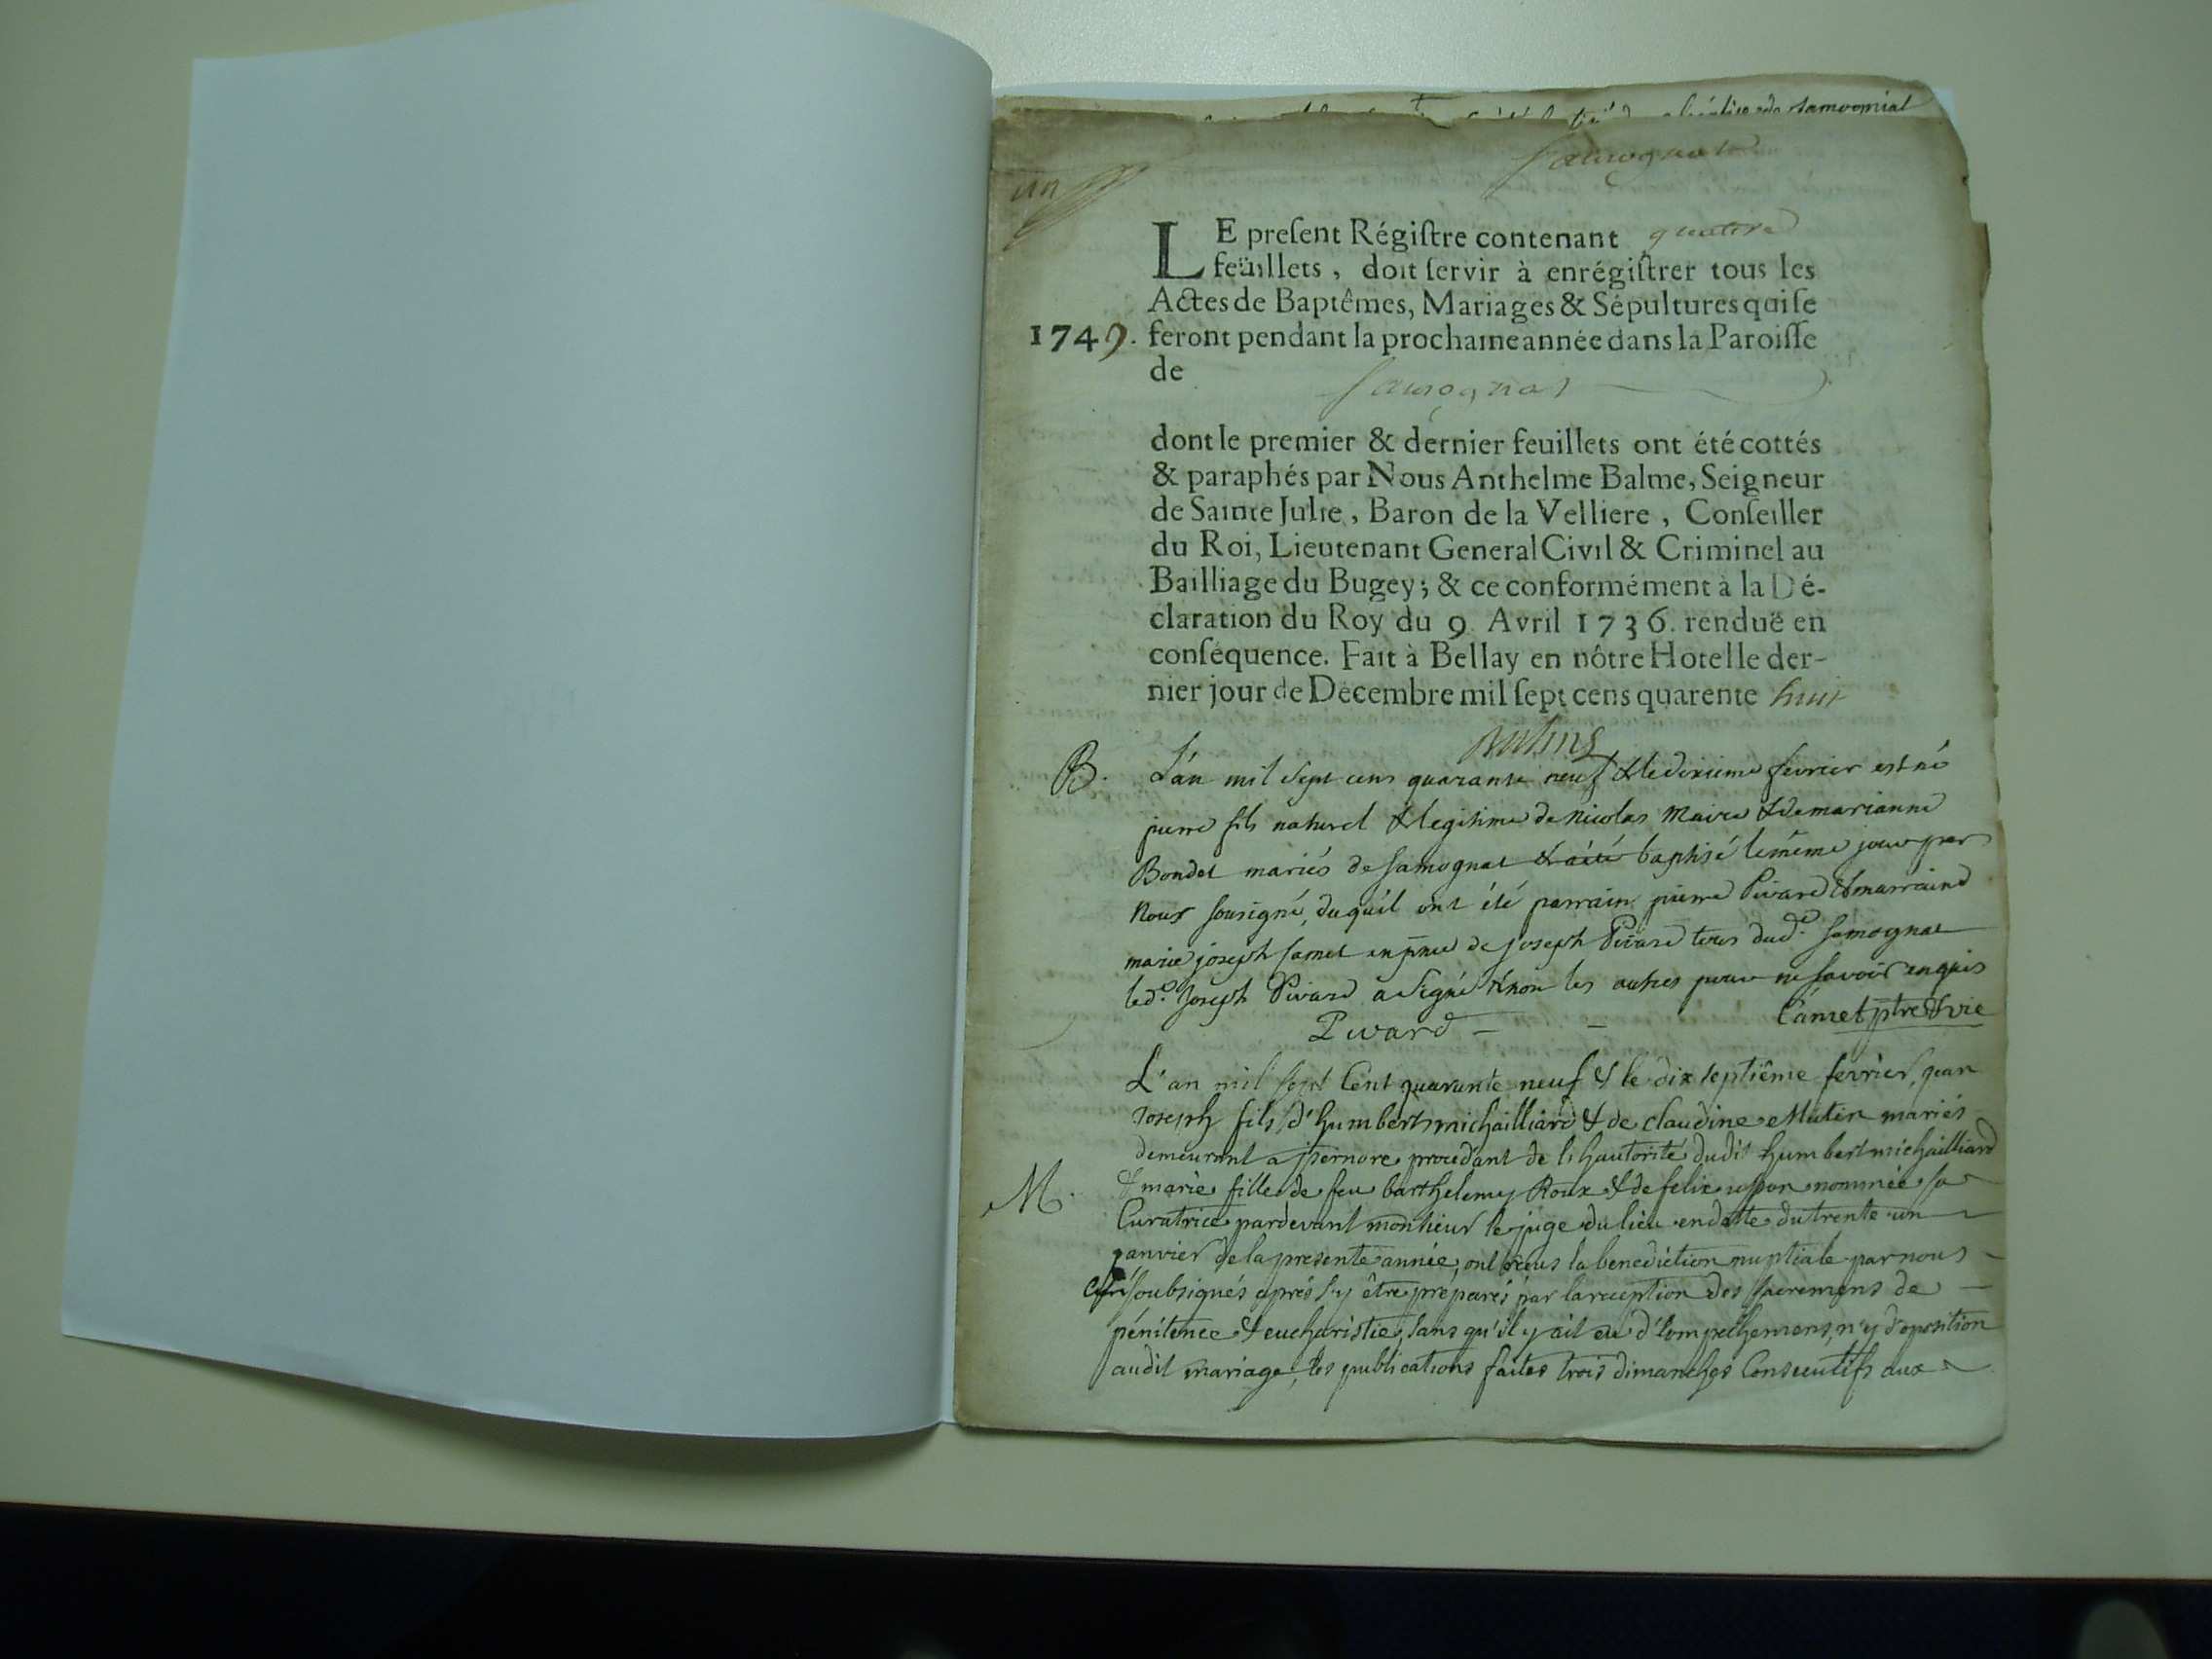 un
Samognat
LE preſent Régiſtre contenant quatorze
feüillets, doit ſervir à enrégiſtrer tous les
Actes de Baptêmes, Mariages & Sépultures qui ſe
1749. feront pendant la prochaine année dans la Paroiſſe
de Samognat
dont le premier & dernier feuillets ont été cottés
& paraphés par Nous Anthelme Balme, Seigneur
de Sainte Julie, Baron de la Velliere, Conſeiller
du Roi, Lieutenant General Civil & Criminel au
Bailliage du Bugey; & ce conformément à la Dé-
claration du Roy du 9. Avril 1736. renduë en
conſéquence. Fait à Bellay en nôtre Hotel le der-
nier jour de Décembre mil ſept cens quarente huit
Balme
B. L'an mil sept cens quarante neuf & le dixieme fevrier est né
pierre fils naturel & legitime de Nicolas Maire & de marianne
Bondet mariés de Samognat & a été baptisé le même jour par
Nous sousigné, duquel ont été parrain pierre Pivard & marraine
marie joseph Camet en pnce de joseph Pivard tous dud. Samognat
led. Joseph Pivard a signé & non les autres pour ne savoir enquis
Pivard - - Camet ptre & vic
L'an mil sept Cent quarante neuf & le dix septiême fevrier, jean
Joseph fils d'humbert michailliard & de claudine Mutin mariés
demeurant a jzernore procedant de l'hautorité dudit humbert michailliard
M. & marie fille de feu barthelemy Roux & de felix nommée sa
Curatrice pardevant monsieur le juge du lieu en datte du trente un
janvier de la presente année, ont reçus la benediction nuptiale par nous
soubsignés aprés s'y être préparés par la reception des sacremens de
pénitence & eucharistie, sans qu'il y ait eu d'empechemens, n'y d'oposition
audit mariage, les publications faites trois dimanches Consecutifs aux